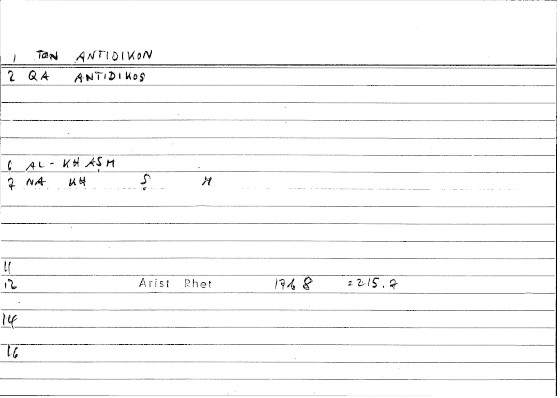 1 TŌN ANTIDIKON
2 QA ANTIDIKOS
6 AL-KHAṢM
7 NA KH Ṣ M
11
12 Arist Rhet 1768 =215.7
14
16